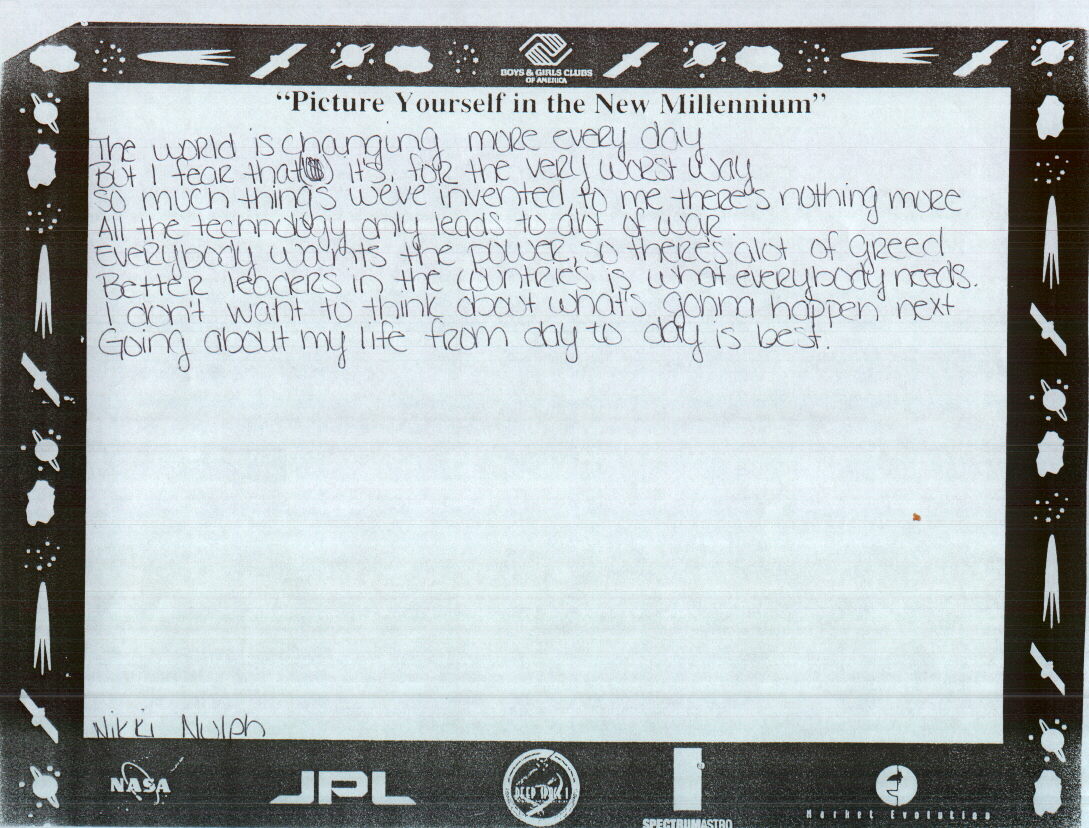 BOYS & GIRLS CLUBS
OF AMERICA
“Picture Yourself in the New Millennium”
The world is changing more every day
But I fear that it's, for the very worst way
so much things we've invented, to me there's nothing more
All the technology only leads to alot of war.
Everybody wants the power, so there's alot of greed
Better leaders in the countries is what everybody needs.
I don't want to think about what's gonna happen next
Going about my life from day to day is best.
Nikki Nulph
NASA
JPL
DEEP SPACE 1
SPECTRUMASTRO
Market Evolution